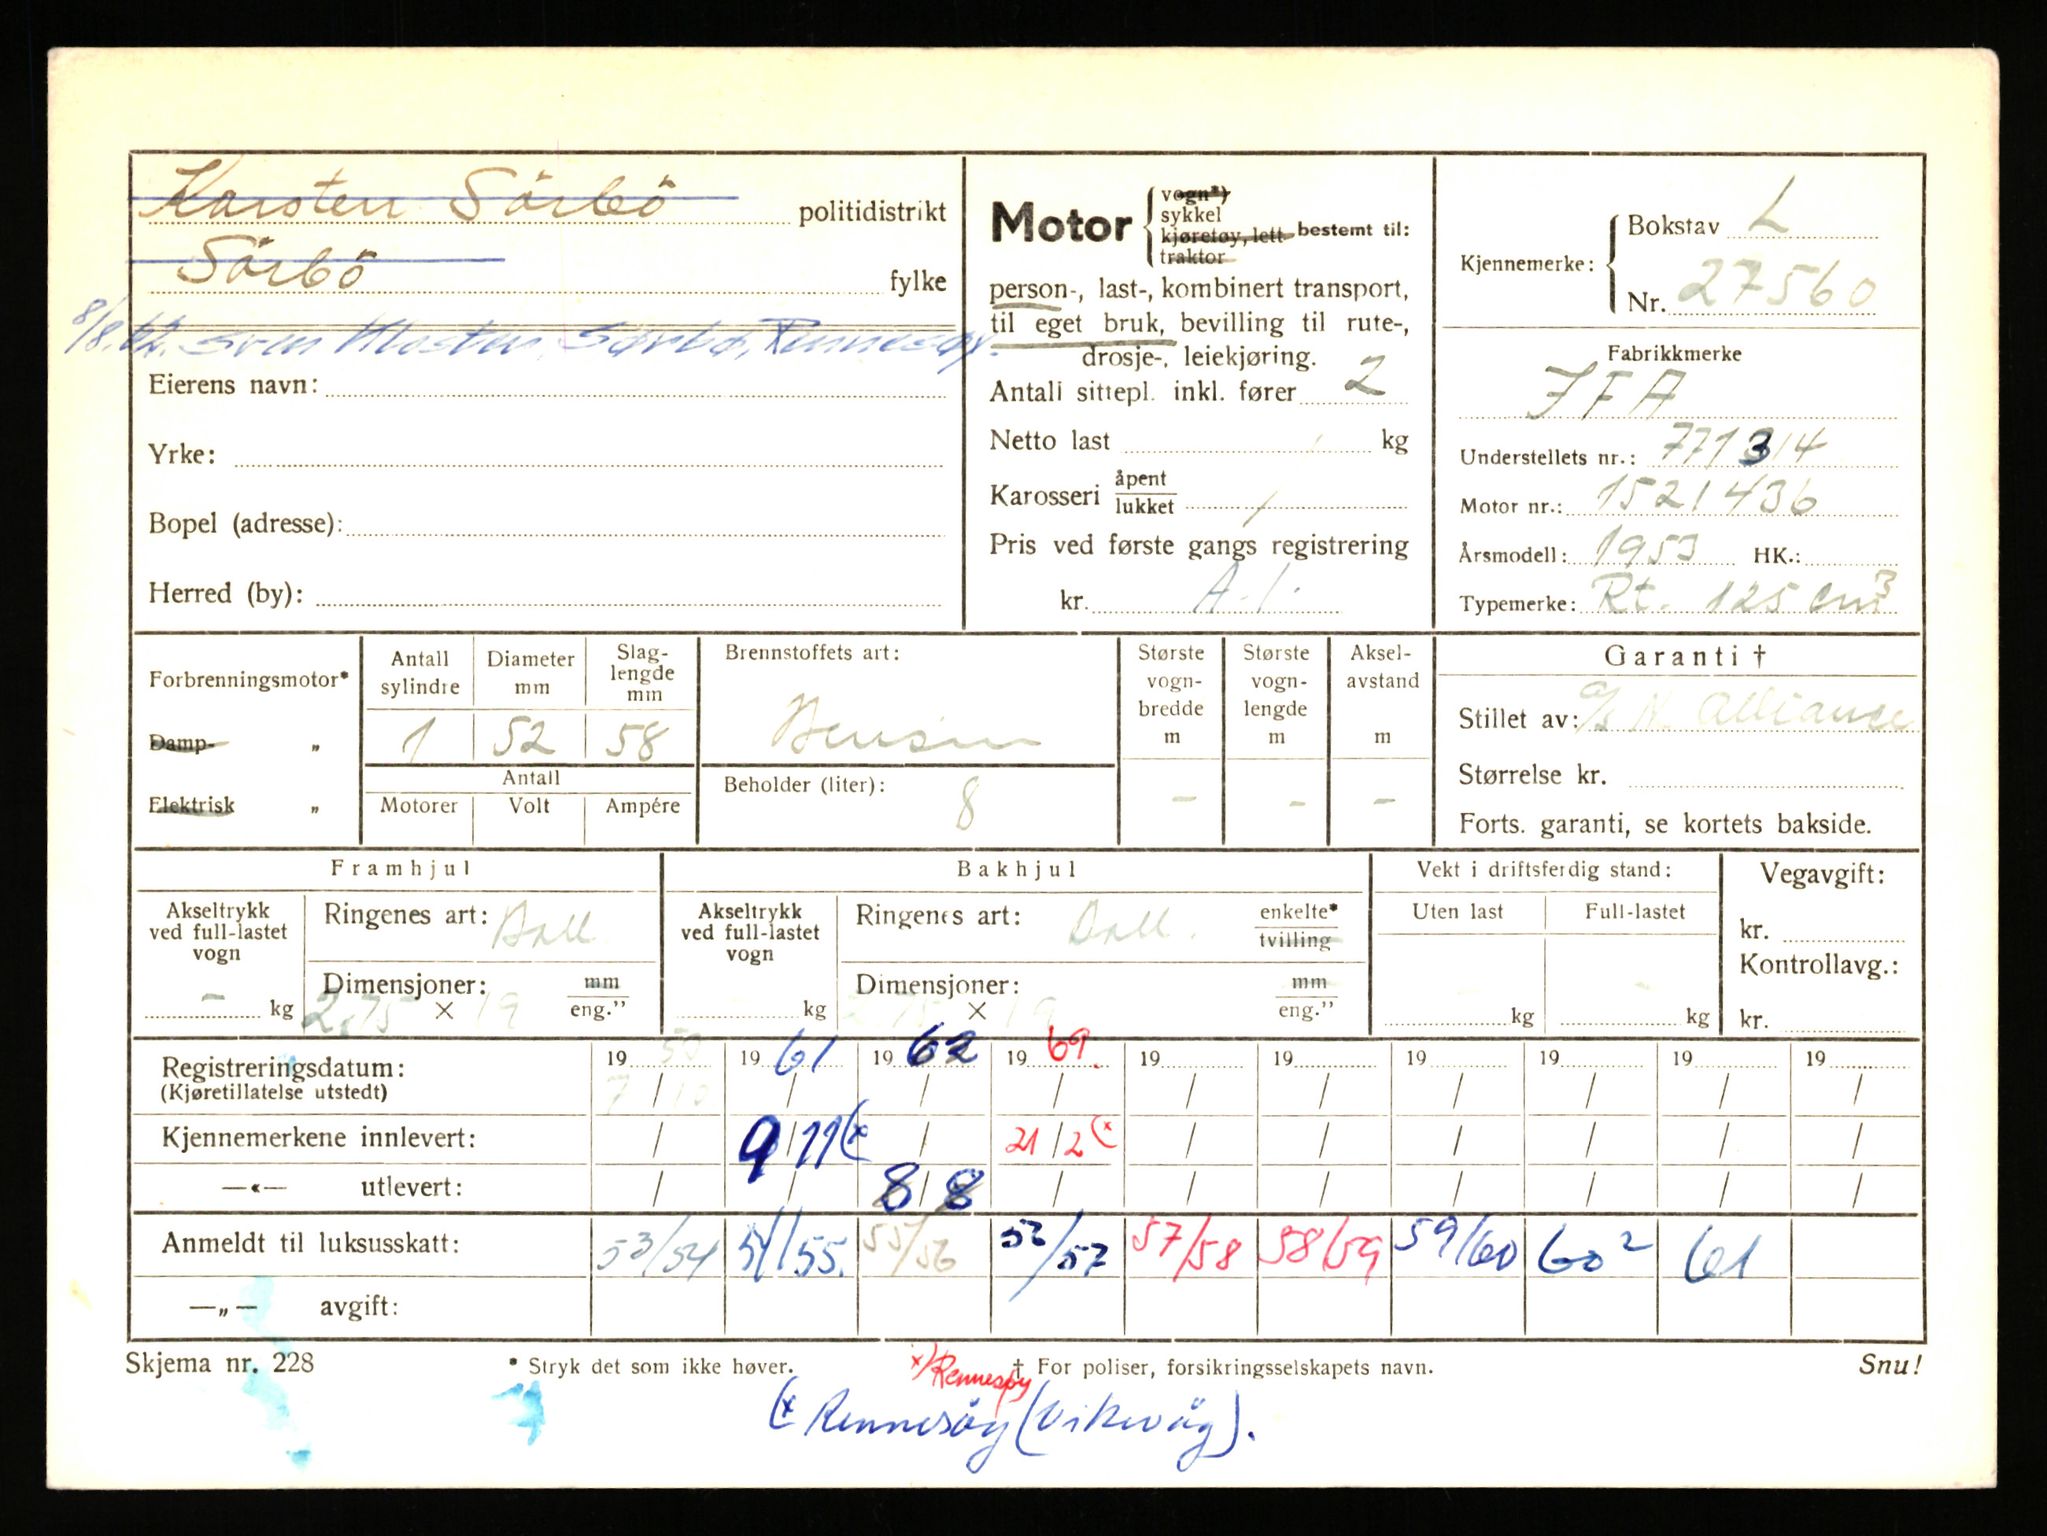 Karsten Sörbö politidistrikt
Sörbö fylke
8/8.62. Sven Klosten, Sørbø, Rennesøy.
Eierens navn:
Yrke:
Bopel (adresse):
Herred (by):
Motor vogn*) sykkel kjøretøy, lett traktor bestemt til:
person-, last-, kombinert transport,
til eget bruk, bevilling til rute-,
drosje-, leiekjøring.
Antall sittepl. inkl. fører 2
Netto last kg
Karosseri åpent lukket
Pris ved første gangs registrering
kr. A.1.
Kjennemerke: Bokstav L
Nr. 27560
Fabrikkmerke
IFA
Understellets nr.: 771314
Motor nr.: 1521436
Årsmodell: 1953 HK.:
Typemerke: Rt. 125 cm3
Forbrenningsmotor*
Damp- „
Elektrisk „
Antall sylindre Diameter mm Slag-lengde mm
1 52 58
Antall
Motorer Volt Ampére
Brennstoffets art:
Bensin
Beholder (liter):
8
Største vogn-bredde m Største vogn-lengde m Aksel-avstand m
- - -
Garanti †
Stillet av: A/S N. Alliance
Størrelse kr.
Forts. garanti, se kortets bakside.
Framhjul
Akseltrykk ved full-lastet vogn - kg
Ringenes art: Ball.
Dimensjoner: mm eng."
2,75 × 19
Bakhjul
Akseltrykk ved full-lastet vogn kg
Ringenes art: Ball. enkelte* tvilling
Dimensjoner: mm eng."
2,75 × 19
Vekt i driftsferdig stand:
Uten last Full-lastet
kg - kg
Vegavgift:
kr.
Kontrollavg.:
kr.
Registreringsdatum: 19 53 19 61 19 62 19 69. 19 19 19 19 19 19
(Kjøretillatelse utstedt) 7/10 / / / / / / / / /
Kjennemerkene innlevert: / 9/11 (x / 21/2 (x / / / / / /
—«— utlevert: / / 8/8 / / / / / / /
Anmeldt til luksusskatt: 53/54 54/55. 55/56 56/57 57/58 58/59 59/60 60² 61
—„— avgift:
Skjema nr. 228 * Stryk det som ikke høver. † For poliser, forsikringsselskapets navn. Snu!
x) Rennesøy
(x Rennesöy (Vikevåg).